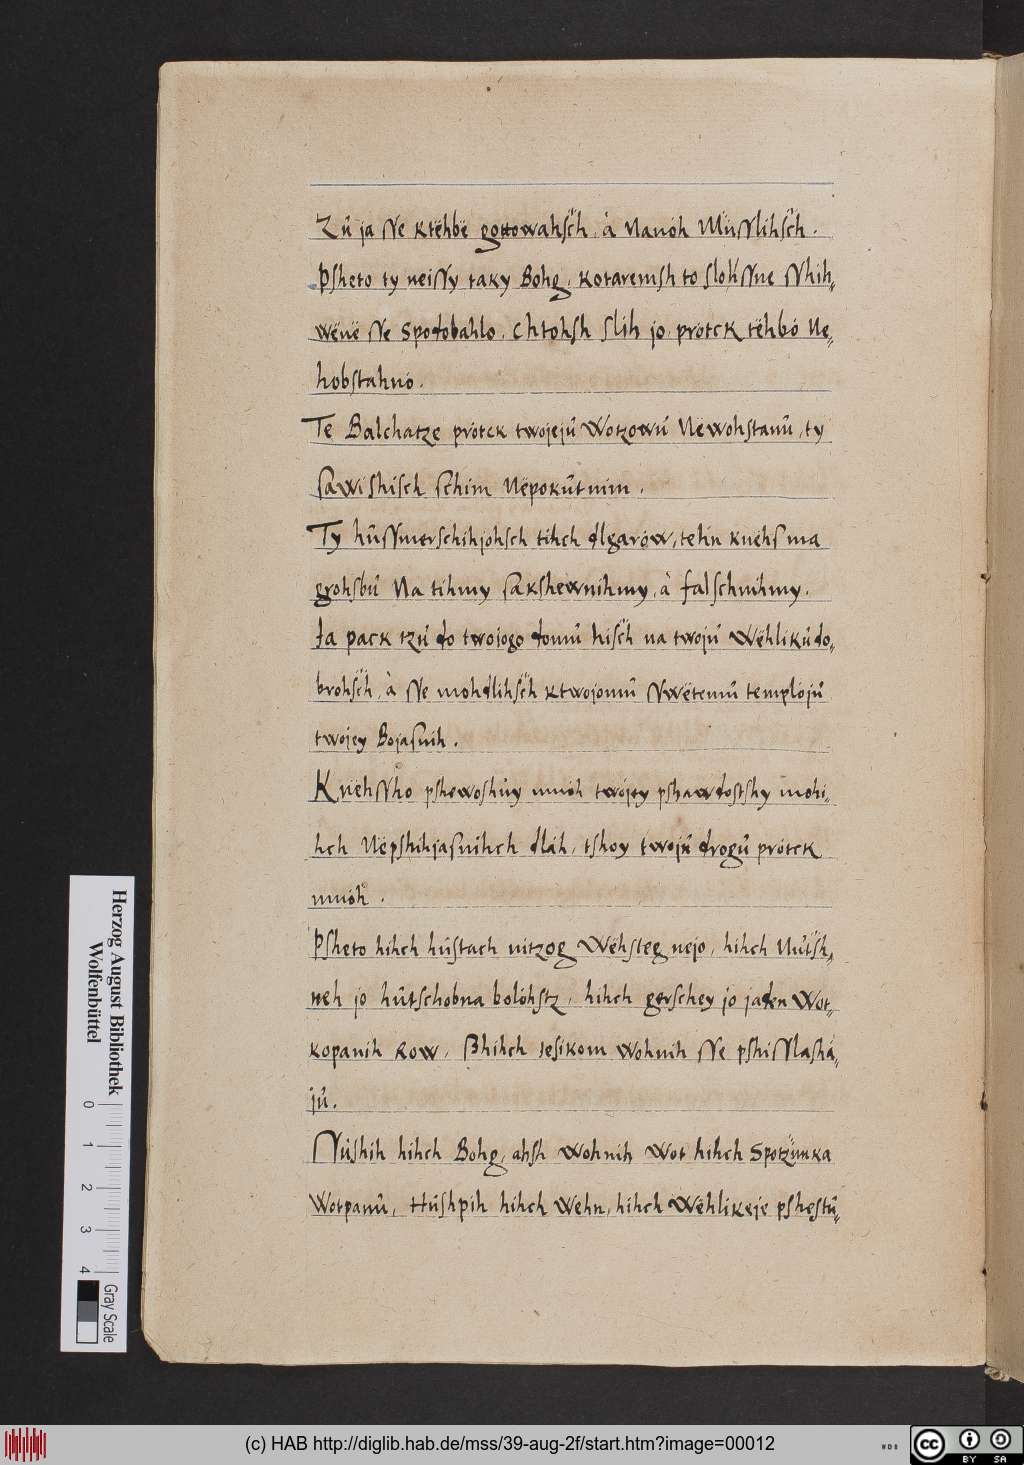 Zů ja ſſe ktëhbë gottowahſch, à Nanóh Müſſlihſch.
Pſheto ty neiſſy taky Bohg, kotaremſh to ſlohſſne ſſhih⸗
wënë ſſe Spodobahlo. Chtohſh ſlih jo prótck tëhbó Ne⸗
hobſtahnó.
Te Balchatze prótck twojejů Wotzowů Nëwohſtanů, ty
ſawiſhiſch ſchim Nëpokůtnim.
Ty hůſſmerſchihjohſch tihch dlgarów, tehn knëhſ ma
grohſbů Na tihmy ſakſhewnihmy, à falſchnihmy.
Ja pack tzů do twojogo domů hiſch na twojů Wëhliků do⸗
brohſch, à ſſe mohdlihſch ktwojomů ſſwëtemů templojů
twojey Bojaſnih.
Knëhſſho pſhewoſhůy mnóh twójey pſhawdoſtſhy mohi⸗
hch Nëpſhihjaſnihch dláh, tſhoy twojů drogů prótck
mnóh.
Pſheto hihch hůſtach nitzog Wëhſteg nejo, hihch Nutſh⸗
neh jo hůtſchobna bolóhſtz, hihch gerſchey jo jaden Wot⸗
kopanih Row, Shihch Jeſikom Wohnih ſſe pſhiſſlaſhá⸗
jů.
Nůſhih hihch Bohg, ahſh wohnih Wot hihch Spotzünka
Wotpanů, Hůſhpih hihch Wehn, hihch Wëhlikeje pſheſtů⸗
Herzog August Bibliothek
Wolfenbüttel
0 1 2 3 4
Gray Scale
(c) HAB http://diglib.hab.de/mss/39-aug-2f/start.htm?image=00012
WDB
CC BY SA